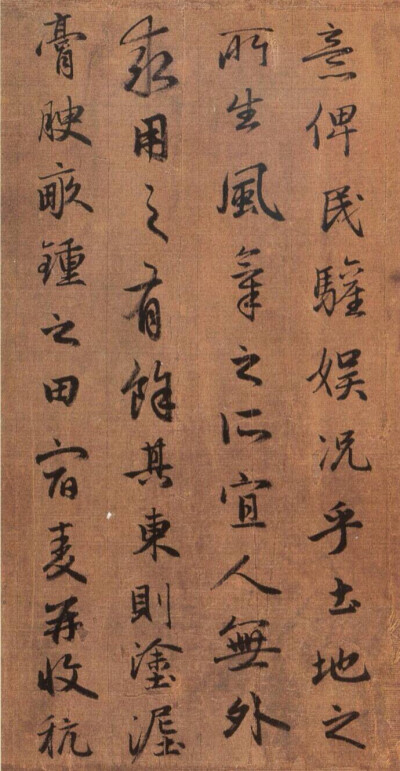 意俾民驩娱况乎土地之
所生風氣之所宜人無外
求用之有餘其東則塗泥
膏腴畝鍾之田宿麦并收秔